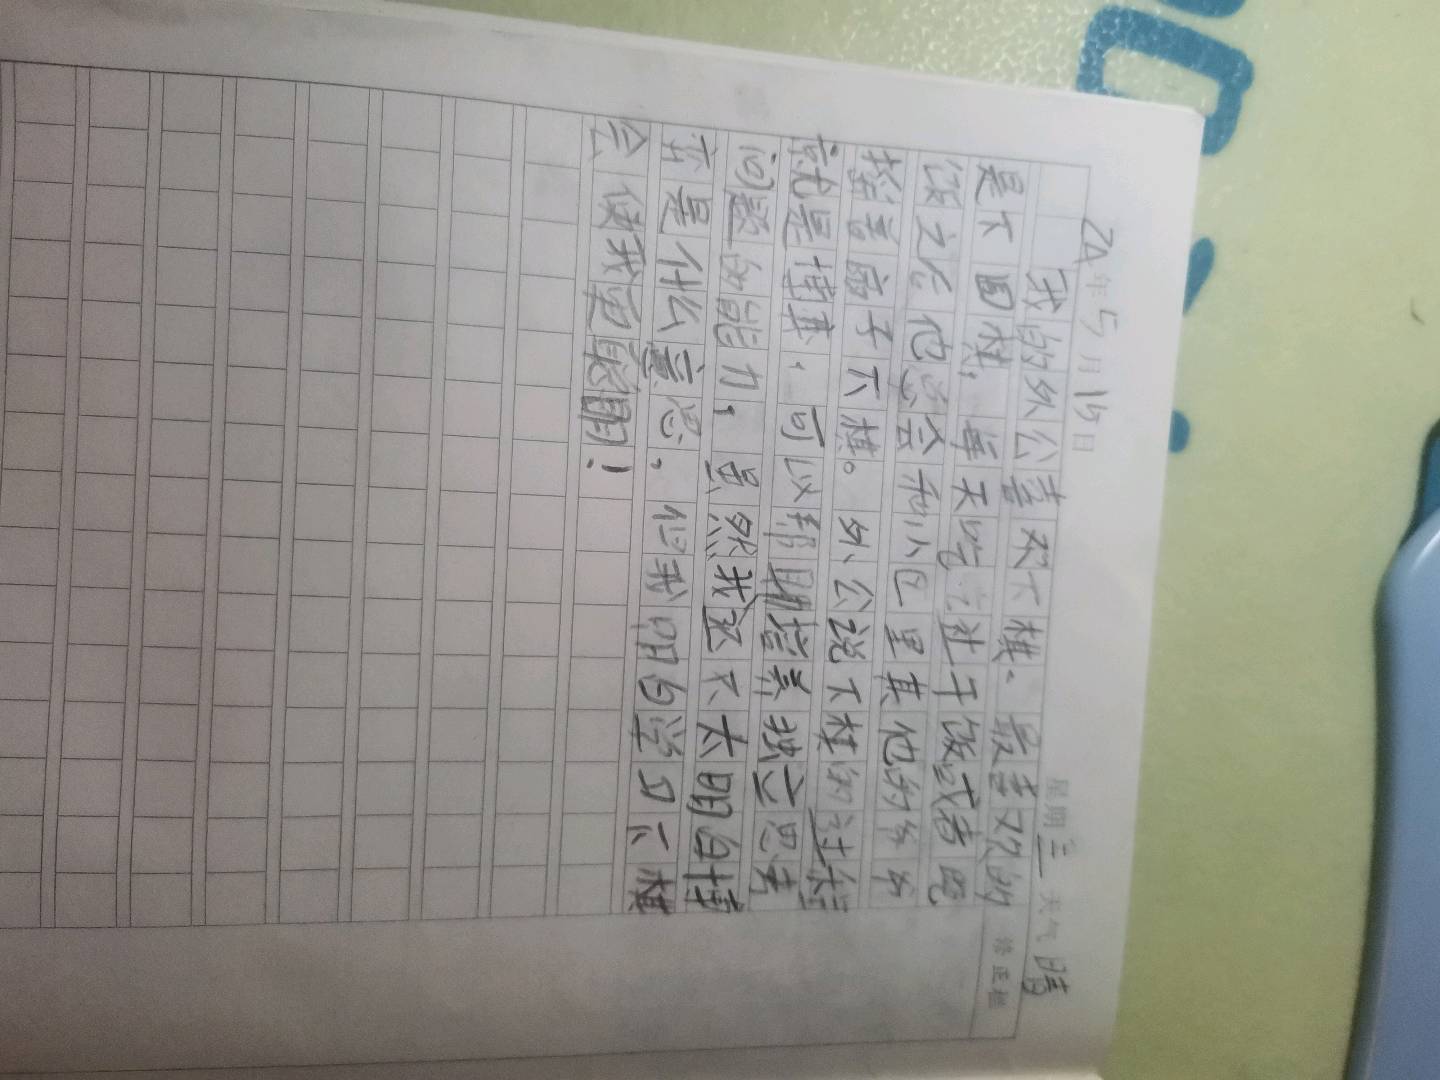 24年5月15日 星期三 天气晴
修正栏
我的外公喜欢下棋。最喜欢的
是下围棋，每天吃完社午饭或者晚
饭之后他总会和小区里其他的爷爷
摇着扇子下棋。外公说下棋的过程
就是博弈，可以帮助培养独立思考
问题的能力，虽然我还不太明白博
弈是什么意思，但我明白学习下棋
会使我更聪明！